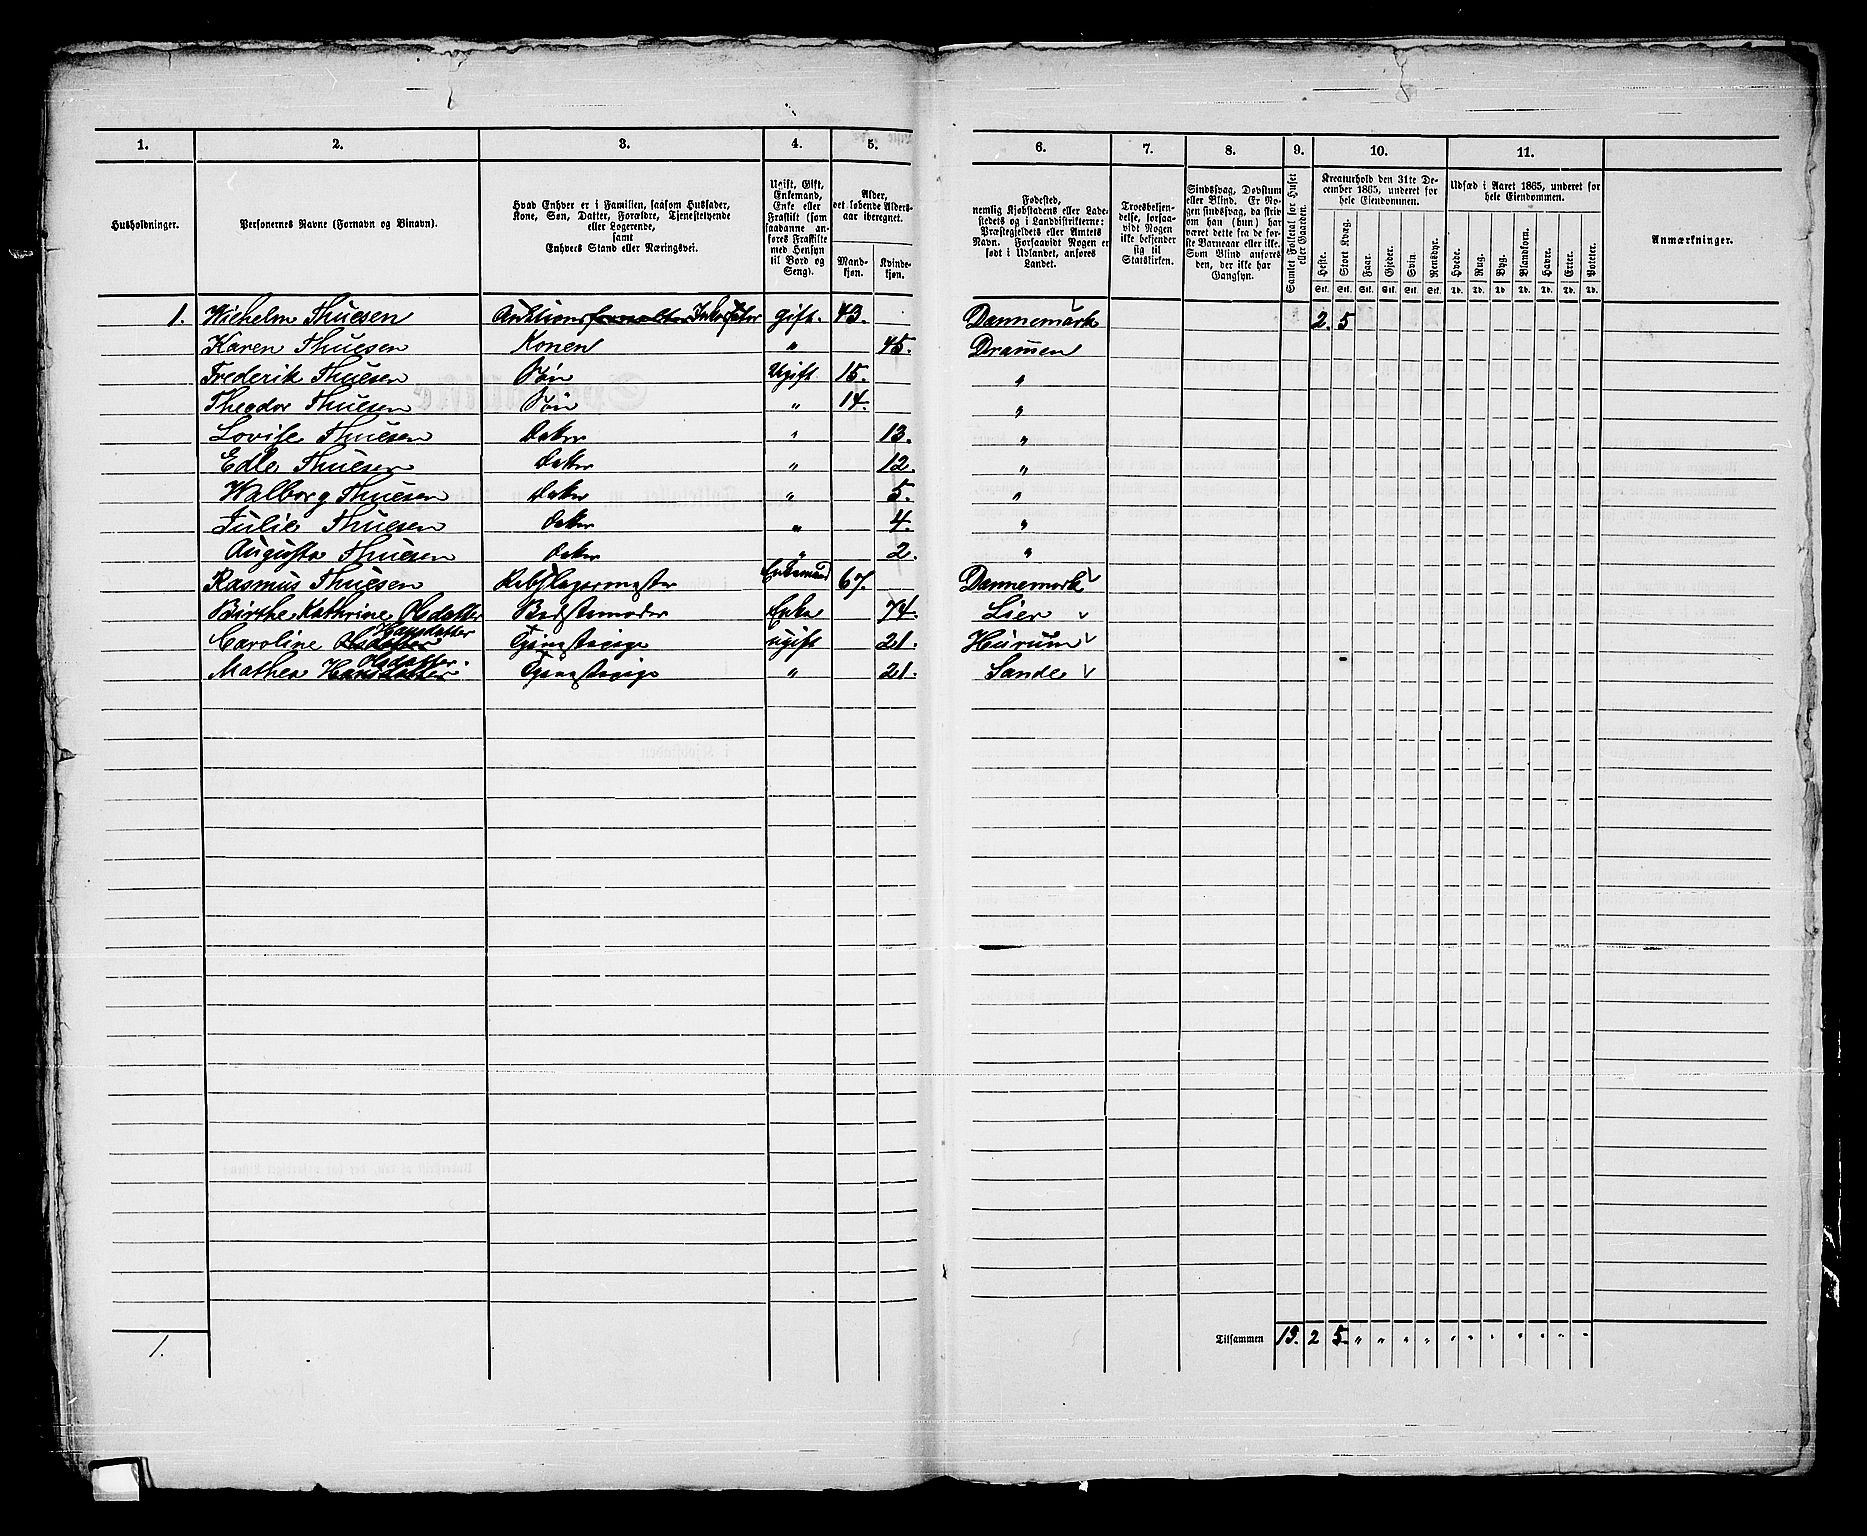 1. 2. 3. 4. 5. 6. 7. 8. 9. 10. 11.
Husholdninger.
Personernes Navne (Fornavn og Binavn).
Hvad Enhver er i Familien, saasom Husfader,
Kone, Søn, Datter, Forældre, Tjenestetyende
eller Logerende,
samt
Enhvers Stand eller Næringsvei.
Ugift, Gift,
Enkemand,
Enke eller
Fraskilt (som
saadanne an-
føres Fraskilte
med Hensyn
til Bord og
Seng).
Alder,
det løbende Alders-
aar iberegnet.
Mand-
kjøn.
Kvinde-
kjøn.
Fødested,
nemlig Kjøbstadens eller Lade-
stedets og i Landdistrikterne:
Præstegjeldets eller Amtets
Navn. Forsaavidt Nogen er
født i Udlandet, anføres
Landet.
Troesbekjen-
delse, forsaa-
vidt Nogen
ikke bekjender
sig til
Statskirken.
Sindssvag, Døvstum
eller Blind. Er No-
gen sindssvag, da skriv
om han (hun) har
været dette fra de før-
ste Barneaar eller ikke.
Som Blind anføres
den, der ikke har
Gangsyn.
Samlet Folketal for Huset
eller Gaarden.
Kreaturhold den 31te De-
cember 1865, underet for
hele Eiendommen.
Heste. Stort Kvæg. Faar. Gjeder. Svin. Rensdyr.
Stk. Stk. Stk. Stk. Stk. Stk.
Udsæd i Aaret 1865, underet for
hele Eiendommen.
Hvede. Rug. Byg. Blandkorn. Havre. Erter. Poteter.
Td. Td. Td. Td. Td. Td. Td.
Anmærkninger.
1. Wilhelm Thuesen gift. 43. Dannemark 2. 5
Karen Thuesen Konen " 45. Dramen
Frederik Thuesen Søn Ugift 15. "
Theodor Thuesen Søn " 14. "
Lovise Thuesen " 13. "
Edle Thuesen " 12. "
Walborg Thuesen " 5. "
Julie Thuesen " 4. "
Augusta Thuesen " 2. "
Rasmus Thuesen Rebslagermester Enkemand 67. Dannemark
Birthe Kathrine Olsdatter Bedstemoder Enke 74. Lier
Caroline Olsdatter Hansdatter Tjenestepige ugift 21. Hurum
Mathea Hansdatter Olsdatter. Tjenestepige " 21. Sande
1.
Tilsammen 13. 2 5. " " " " " " " " " " "